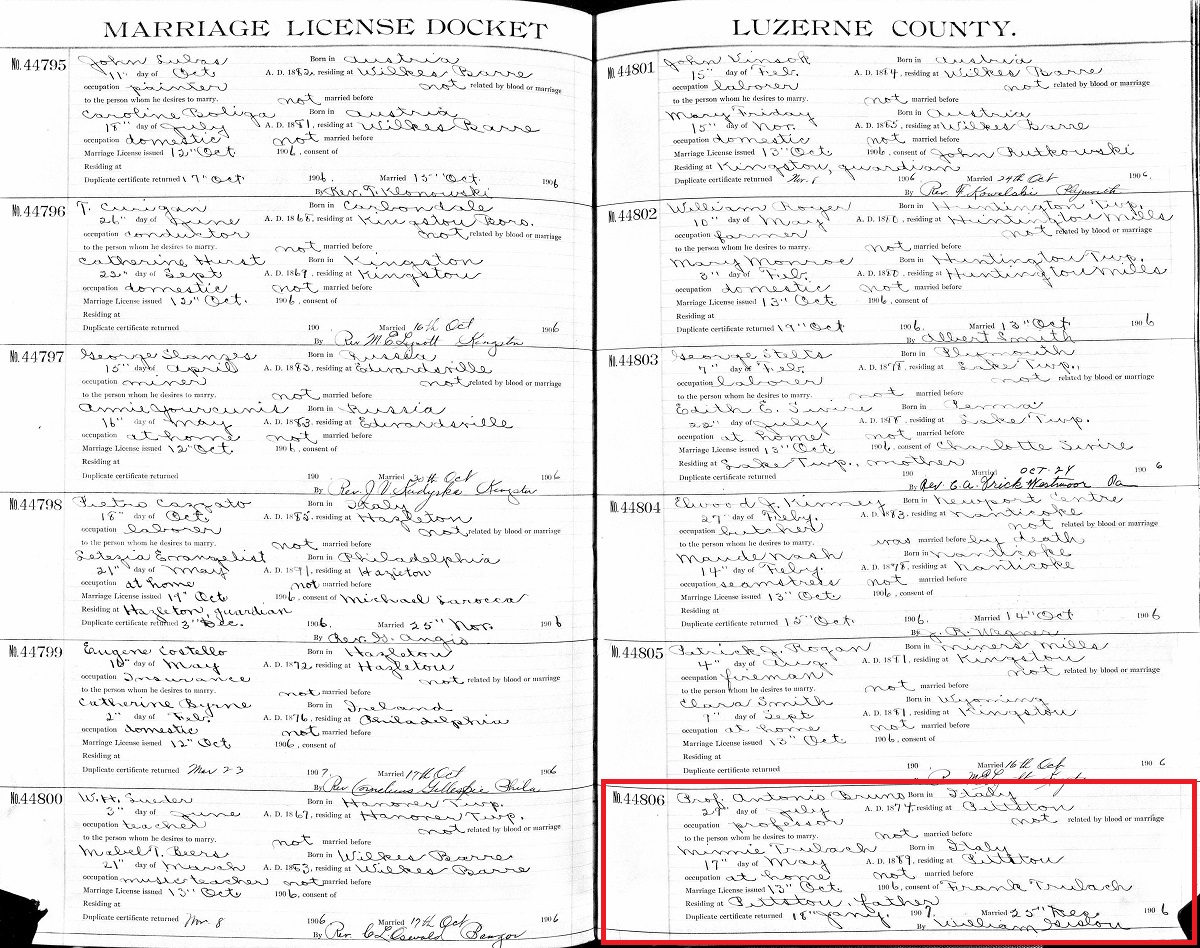 MARRIAGE LICENSE DOCKET
No. 44795 John Lubas Born in Austria
11" day of Oct A. D. 1882, residing at Wilkes Barre
occupation painter not related by blood or marriage
to the person whom he desires to marry. not married before
Caroline Boliga Born in Austria
18" day of July A. D. 1881, residing at Wilkes Barre
occupation domestic not married before
Marriage License issued 12" Oct 1906, consent of
Residing at
Duplicate certificate returned 17" Oct 1906. Married 15" Oct. 1906
By Rev. T. Klonowski
No. 44796 T. Curigan Born in Carbondale
26" day of June A. D. 1868, residing at Kingston Boro.
occupation conductor not related by blood or marriage
to the person whom he desires to marry. not married before
Catherine Hurst Born in Kingston
22" day of Sept A. D. 1869, residing at Kingston
occupation domestic not married before
Marriage License issued 12" Oct. 1906, consent of
Residing at
Duplicate certificate returned 190 Married 16th Oct 1906
By Rev M. E. Lynott Kingston
No. 44797 George Slanzes Born in Russia
15" day of April A. D. 1883, residing at Edwardsville
occupation miner not related by blood or marriage
to the person whom he desires to marry. not married before
Annie Yourcunis Born in Russia
16" day of May A. D. 1883, residing at Edwardsville
occupation at home not married before
Marriage License issued 12" Oct 1906, consent of
Residing at
Duplicate certificate returned 190 Married 20th Oct 1906
By Rev. J. V. Kudyska Kingston
No. 44798 Pietro Cazzato Born in Italy
18" day of Oct A. D. 1882, residing at Hazleton
occupation laborer not related by blood or marriage
to the person whom he desires to marry. not married before
Letezia Evangelist Born in Philadelphia
21" day of May A. D. 1891, residing at Hazleton
occupation at home not married before
Marriage License issued 17" Oct 1906, consent of Michael Sarocca
Residing at Hazleton, guardian
Duplicate certificate returned 3" Dec. 1906. Married 25" Nov. 1906
By Rev. G. Angio
No. 44799 Eugene Costello Born in Hazleton
10" day of May A. D. 1872, residing at Hazleton
occupation Insurance not related by blood or marriage
to the person whom he desires to marry. not married before
Catherine Byrne Born in Ireland
2" day of Feb. A. D. 1876, residing at Philadelphia
occupation domestic not married before
Marriage License issued 12" Oct 1906, consent of
Residing at
Duplicate certificate returned Mar 23 1907. Married 17th Oct 1906
By Rev Cornelius Gillespie Phila
No. 44800 W. H. Lueder Born in Hanover Twp.
3" day of June A. D. 1867, residing at Hanover Twp.
occupation teacher not related by blood or marriage
to the person whom he desires to marry. not married before
Mabel T. Beers Born in Wilkes Barre
21" day of March A. D. 1883, residing at Wilkes Barre
occupation music teacher not married before
Marriage License issued 13" Oct 1906, consent of
Residing at
Duplicate certificate returned Nov. 8 1906 Married 17th Oct 1906
By Rev. C. L. Oswald Bangor
LUZERNE COUNTY.
No. 44801 John Vinsok Born in Austria
15" day of Feb. A. D. 1884, residing at Wilkes Barre
occupation laborer not related by blood or marriage
to the person whom he desires to marry. not married before
Mary Friday Born in Austria
15" day of Nov. A. D. 1885, residing at Wilkes Barre
occupation domestic not married before
Marriage License issued 13" Oct 1906, consent of John Rutkowski
Residing at Kingston, guardian
Duplicate certificate returned Nov. 8 1906 Married 24th Oct 1906.
By Rev. F. Kowalski Plymouth
No. 44802 William Royer Born in Huntington Twp.
10" day of May A. D. 1880, residing at Huntington Mills
occupation farmer not related by blood or marriage
to the person whom he desires to marry. not married before
Mary Monroe Born in Huntington Twp.
3" day of Feb. A. D. 1880, residing at Huntington Mills
occupation domestic not married before
Marriage License issued 13" Oct 1906, consent of
Residing at
Duplicate certificate returned 19" Oct 1906. Married 13" Oct. 1906
By Albert Smith
No. 44803 George Stelts Born in Plymouth
7" day of Feb. A. D. 1878, residing at Lake Twp.,
occupation laborer not related by blood or marriage
to the person whom he desires to marry. not married before
Edith E. Swire Born in Penna
22" day of July A. D. 1888, residing at Lake Twp.
occupation at home not married before
Marriage License issued 13" Oct. 1906, consent of Charlotte Swire
Residing at Lake Twp., mother
Duplicate certificate returned 190 Married OCT-24 1906
By Rev. C. A. Frick Westmoor Pa
No. 44804 Elwood J. Kinney Born in Newport Centre
27" day of Feby. A. D. 1883, residing at Nanticoke
occupation butcher not related by blood or marriage
to the person whom he desires to marry. was married before by death
Maude Nash Born in Nanticoke
14" day of Feby. A. D. 1878, residing at Nanticoke
occupation seamstress not married before
Marriage License issued 13" Oct 1906, consent of
Residing at
Duplicate certificate returned 15" Oct. 1906. Married 14" Oct 1906
By J. R. Wagner
No. 44805 Patrick J. Rogan Born in Miners Mills
4" day of Aug. A. D. 1881, residing at Kingston
occupation fireman not related by blood or marriage
to the person whom he desires to marry. not married before
Clara Smith Born in Wyoming
9" day of Sept A. D. 1881, residing at Kingston
occupation at home not married before
Marriage License issued 13" Oct 1906, consent of
Residing at
Duplicate certificate returned 190 Married 16th Oct 1906
No. 44806 Prof. Antonio Bruno Born in Italy
29" day of July A. D. 1874, residing at Pittston
occupation professor not related by blood or marriage
to the person whom he desires to marry. not married before
Minnie Trulach Born in Italy
17" day of May A. D. 1889, residing at Pittston
occupation at home not married before
Marriage License issued 13" Oct 1906, consent of Frank Trulach
Residing at Pittston, father
Duplicate certificate returned 18" Jany. 1907. Married 25" Dec. 1906
By William Gislon